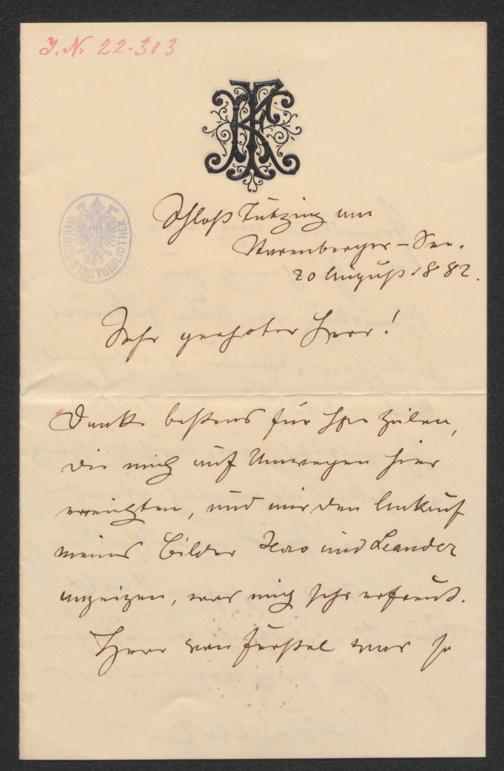 J. N. 22.313
WIENER STADTBIBLIOTHEK
Schloß Tutzing am
Starenberger-See.
20 August 1882.
Sehr geehrter Herr!
Danke bestens für Ihre Zeilen,
die mich auf Umwegen hier
erreichten, und mir den Ankauf
meines Bildes Hero und Leander
anzeigen, was mich sehr erfreut.
Herr von Ferstel war so